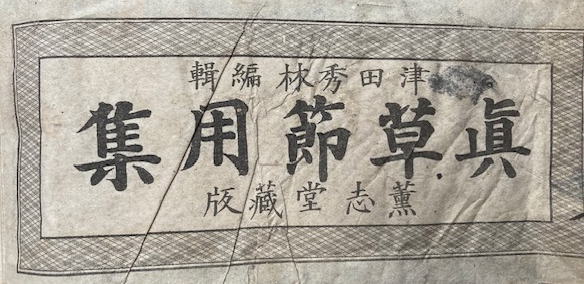 津田秀林編輯
眞草節用集
薫志堂藏版